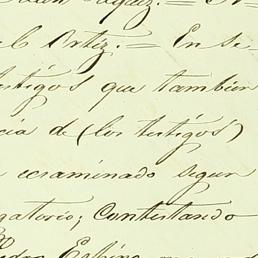 l Ortiz. = En se-
testigos que tambien
cia de (los testigos)
ecsaminado segun
gatorio; Contestando
Pedro Espino